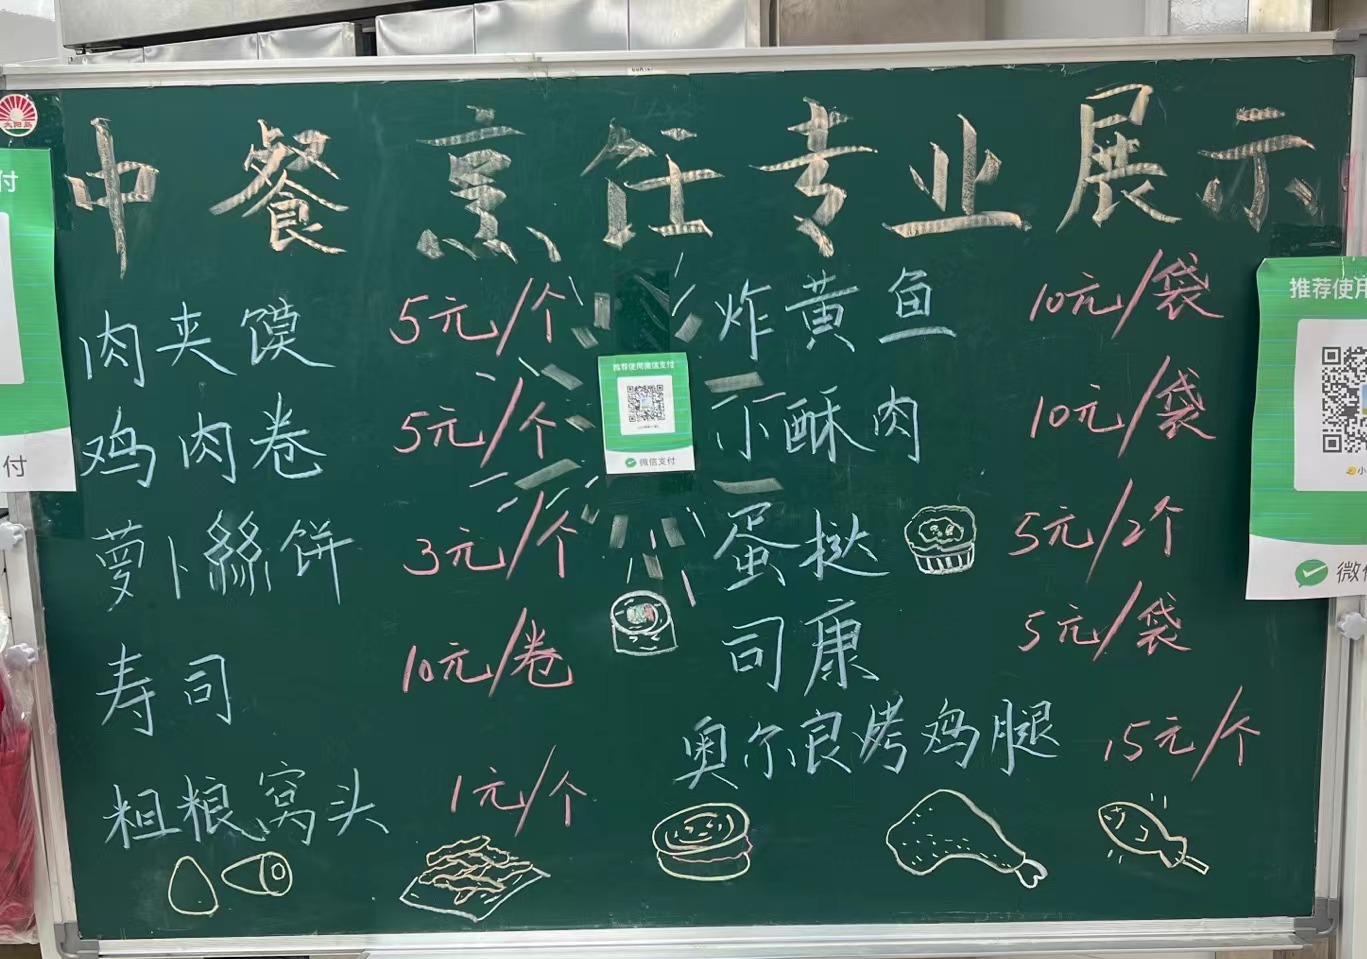 中餐烹饪专业展示
肉夹馍 5元/个
鸡肉卷 5元/个
萝卜絲饼 3元/个
寿司 10元/卷
粗粮窝头 1元/个
炸黄鱼 10元/袋
小酥肉 10元/袋
蛋挞 5元/2个
司康 5元/袋
奥尔良烤鸡腿 15元/个
推荐使用微信支付
微信支付
太阳岛
付
付
推荐使用
微信